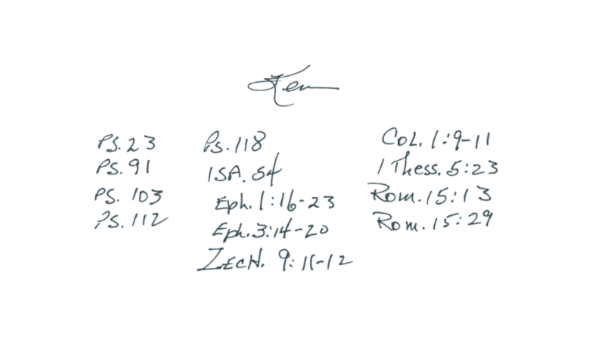 Ken
PS. 23
PS. 91
PS. 103
PS. 112
Ps. 118
ISA. 54
Eph. 1:16-23
Eph. 3:14-20
ZECH. 9:11-12
COL. 1:9-11
1 Thess. 5:23
Rom. 15:13
Rom. 15:29